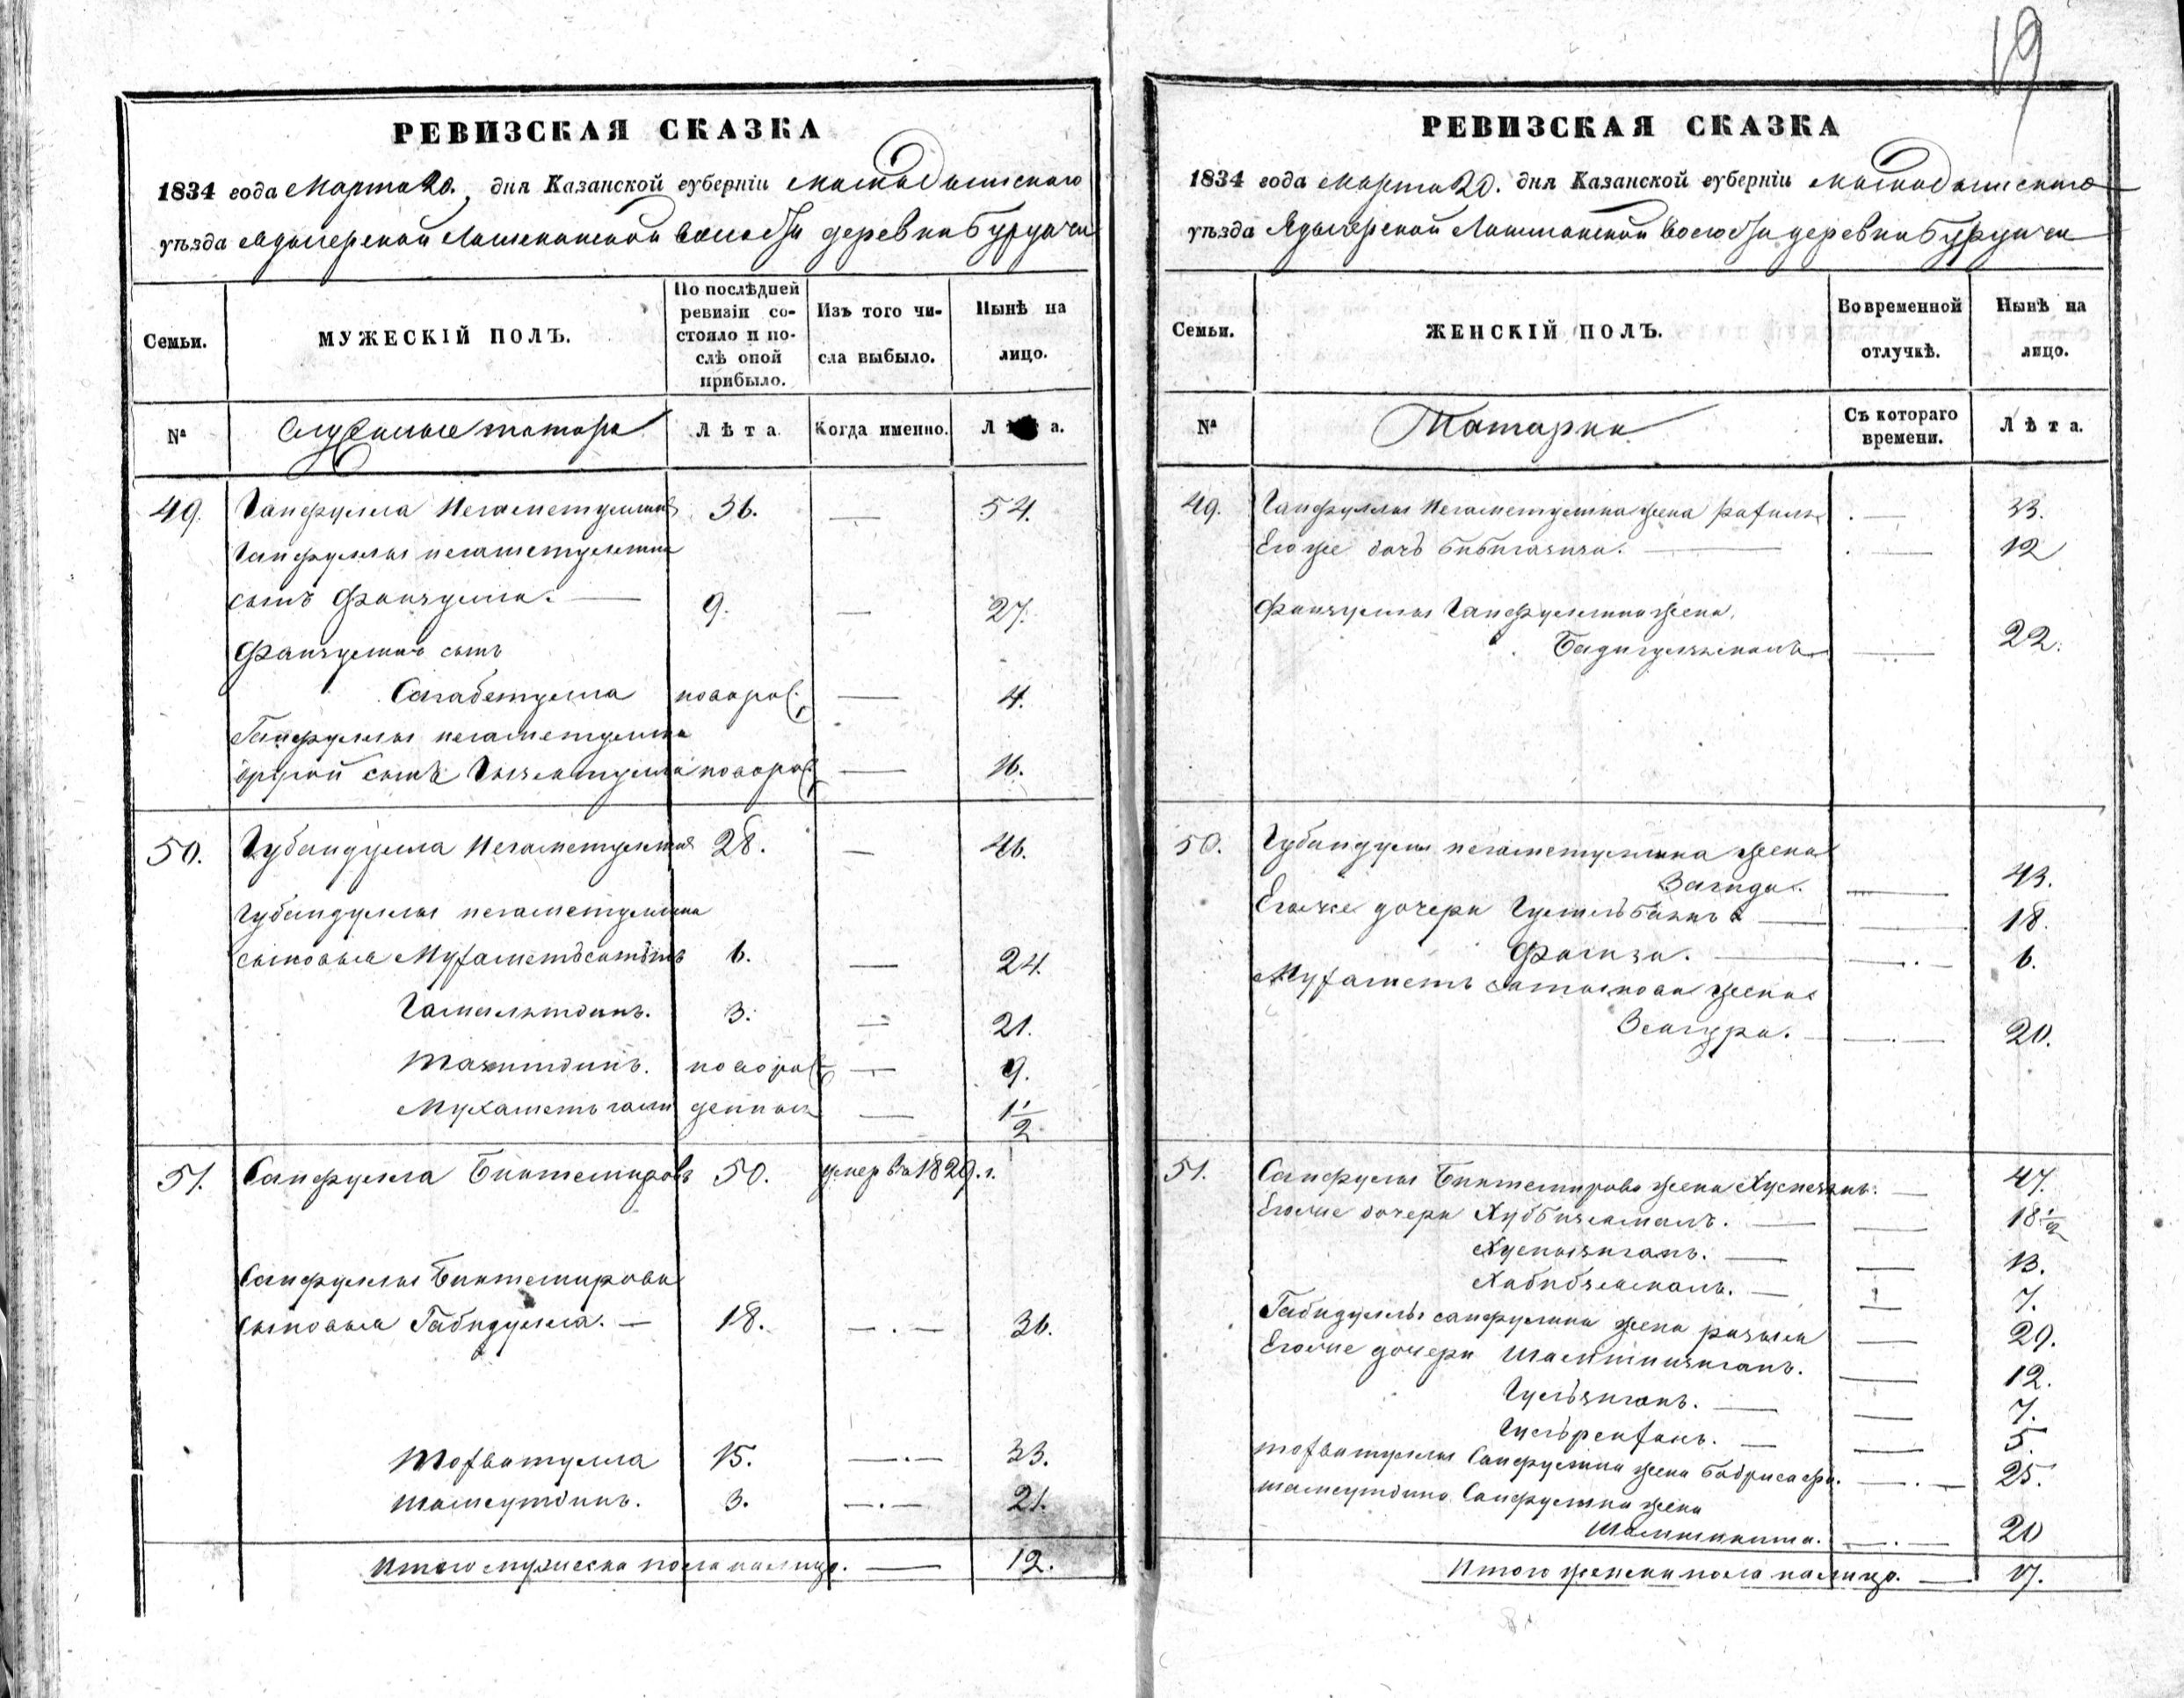 19
РЕВИЗСКАЯ СКАЗКА
1834 года Марта 20. дня Казанской губерніи Мамадышскаго
уѣзда Ядыгерской Лашманской волости деревни Бурдучи
Семьи.
МУЖЕСКІЙ ПОЛЪ.
По послѣдней ревизіи состояло и послѣ оной прибыло.
Изъ того числа выбыло.
Нынѣ на лицо.
№
Служилые татары
Лѣта
Когда именно.
Лѣта.
49. Гайфулла Негаметуллинъ 36. — 54.
Гайфуллы негаметуллина
сынъ Файзулла. — 9. — 27.
Файзуллинъ сынъ
Сагабетулла новорож. — 4.
Гайфуллы негаметуллина
другой сынъ новорож. — 16.
50. Губайдулла Негаметуллинъ 28. — 46.
Губайдуллы негаметуллина
сыновья 6. — 24.
3. — 21.
Тазитдинъ. новорож — 9.
Мухаметьгали денныя — 1½
51. Сайфулла Биктемировъ 50. умер въ 1829. г.
Сайфуллы Биктемирова
сыновья Габидулла. — 18. — . — 36.
Тохватулла 15. — . — 33.
Шамсутдинъ. 3. — . — 21.
Итого мужеска пола налицо. — 12.
РЕВИЗСКАЯ СКАЗКА
1834 года Марта 20. дня Казанской губерніи Мамадышскаго
уѣзда Ядыгерской Лашманской волости деревни Бурдучи
Семьи.
ЖЕНСКІЙ ПОЛЪ.
Во временной отлучкѣ.
Нынѣ на лицо.
№
Татарки
Съ котораго времени.
Лѣта.
49. Гайфуллы Негаметуллина жена — 33.
Его же дочь Бибигазиза. — 12
Файзуллы Гайфуллина жена
Бадигулзямалъ — 22.
50. Губайдуллы негаметуллина жена
Загида. — 43.
Его же дочери — 18.
Фагиза. — . — 6.
жена
Зюгура. — . — 20.
51. Сайфуллы Биктемирова жена — 47.
Его же дочери — 18½
Хуснизиганъ. — 13.
Хабибзямалъ. — 7.
Габидуллы сайфуллина жена разыя — 29.
Его же дочери Шамсинизиганъ. — 12.
Гульзиганъ. — 7.
— 5.
Тохватуллы Сайфуллина жена Бадрисафа. — . — 25.
Шамсутдина Сайфуллина жена
— . — 20
Итого женска пола налицо. — 17.